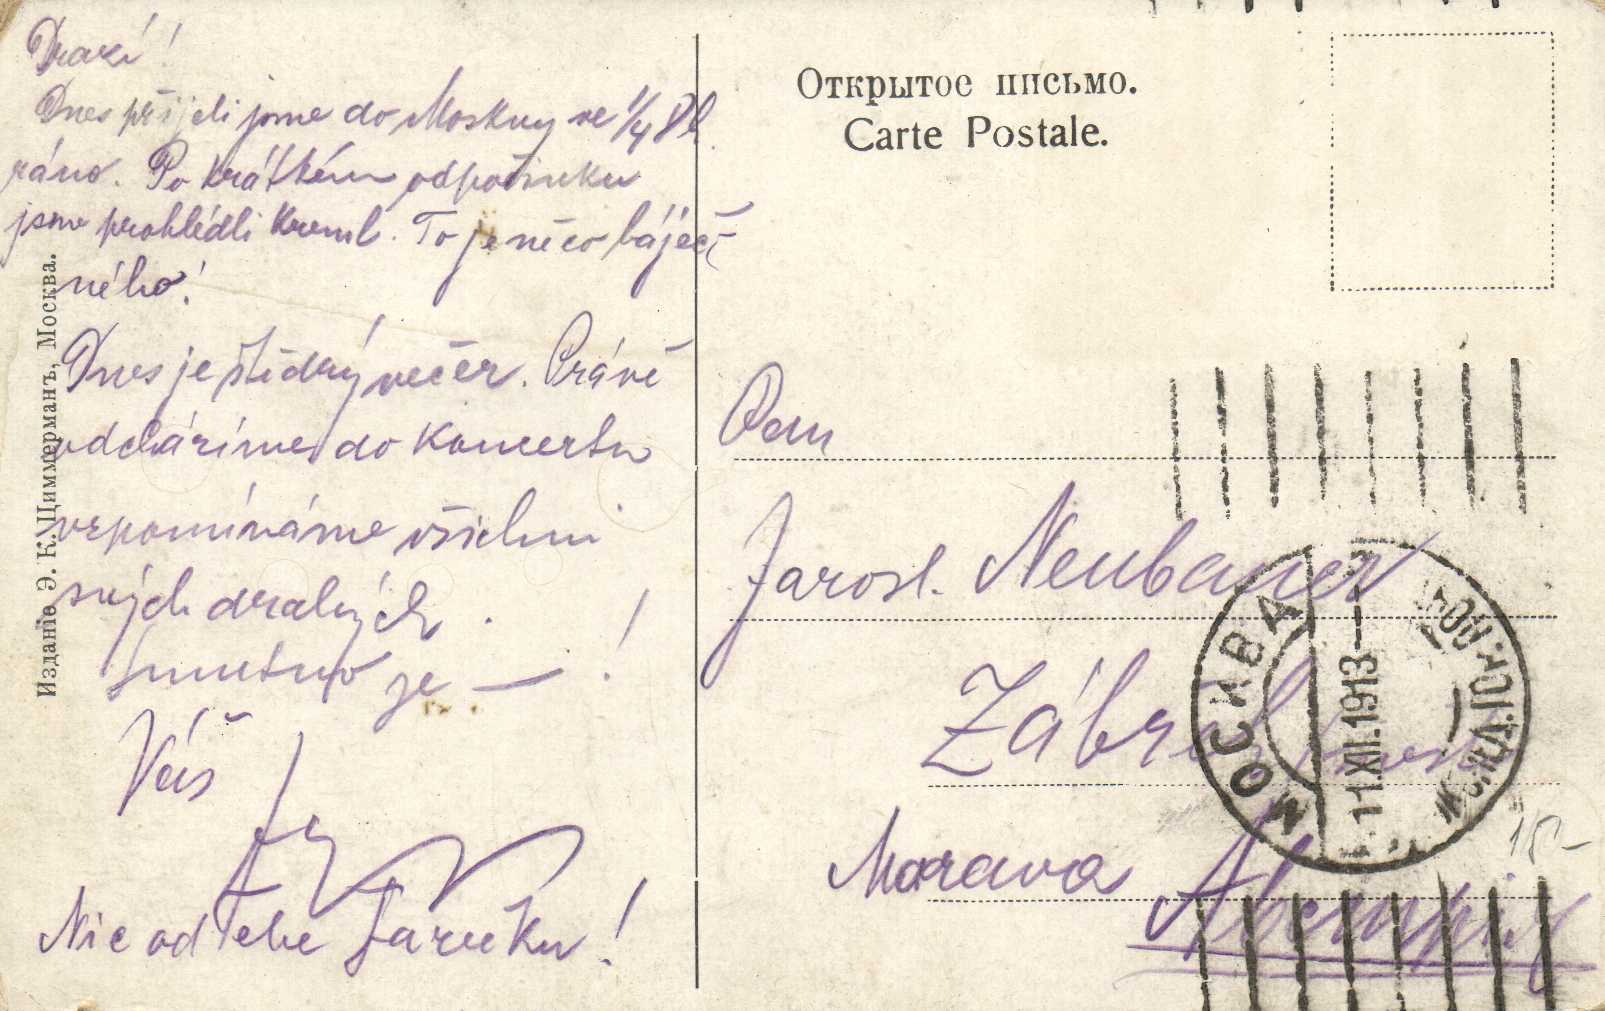 Drazí!
Dnes přijeli jsme do Moskvy ve 1/4 8 h.
ráno. Po krátkém odpočinku
jsme prohlédli Kreml. To je něco báječ
ného!
Dnes je štědrý večer. Právě
odcházíme do koncertu
vzpomínáme všichni
svých drahých.
Smutno je — !
Váš
Nic od Tebe Jarečku!
Изданіе Э. К. Циммерманъ, Москва.
Открытое письмо.
Carte Postale.
Pan
Jarosl. Neubauer
Zábřeh
Morava
МОСКВА
11.XII.1913
15-